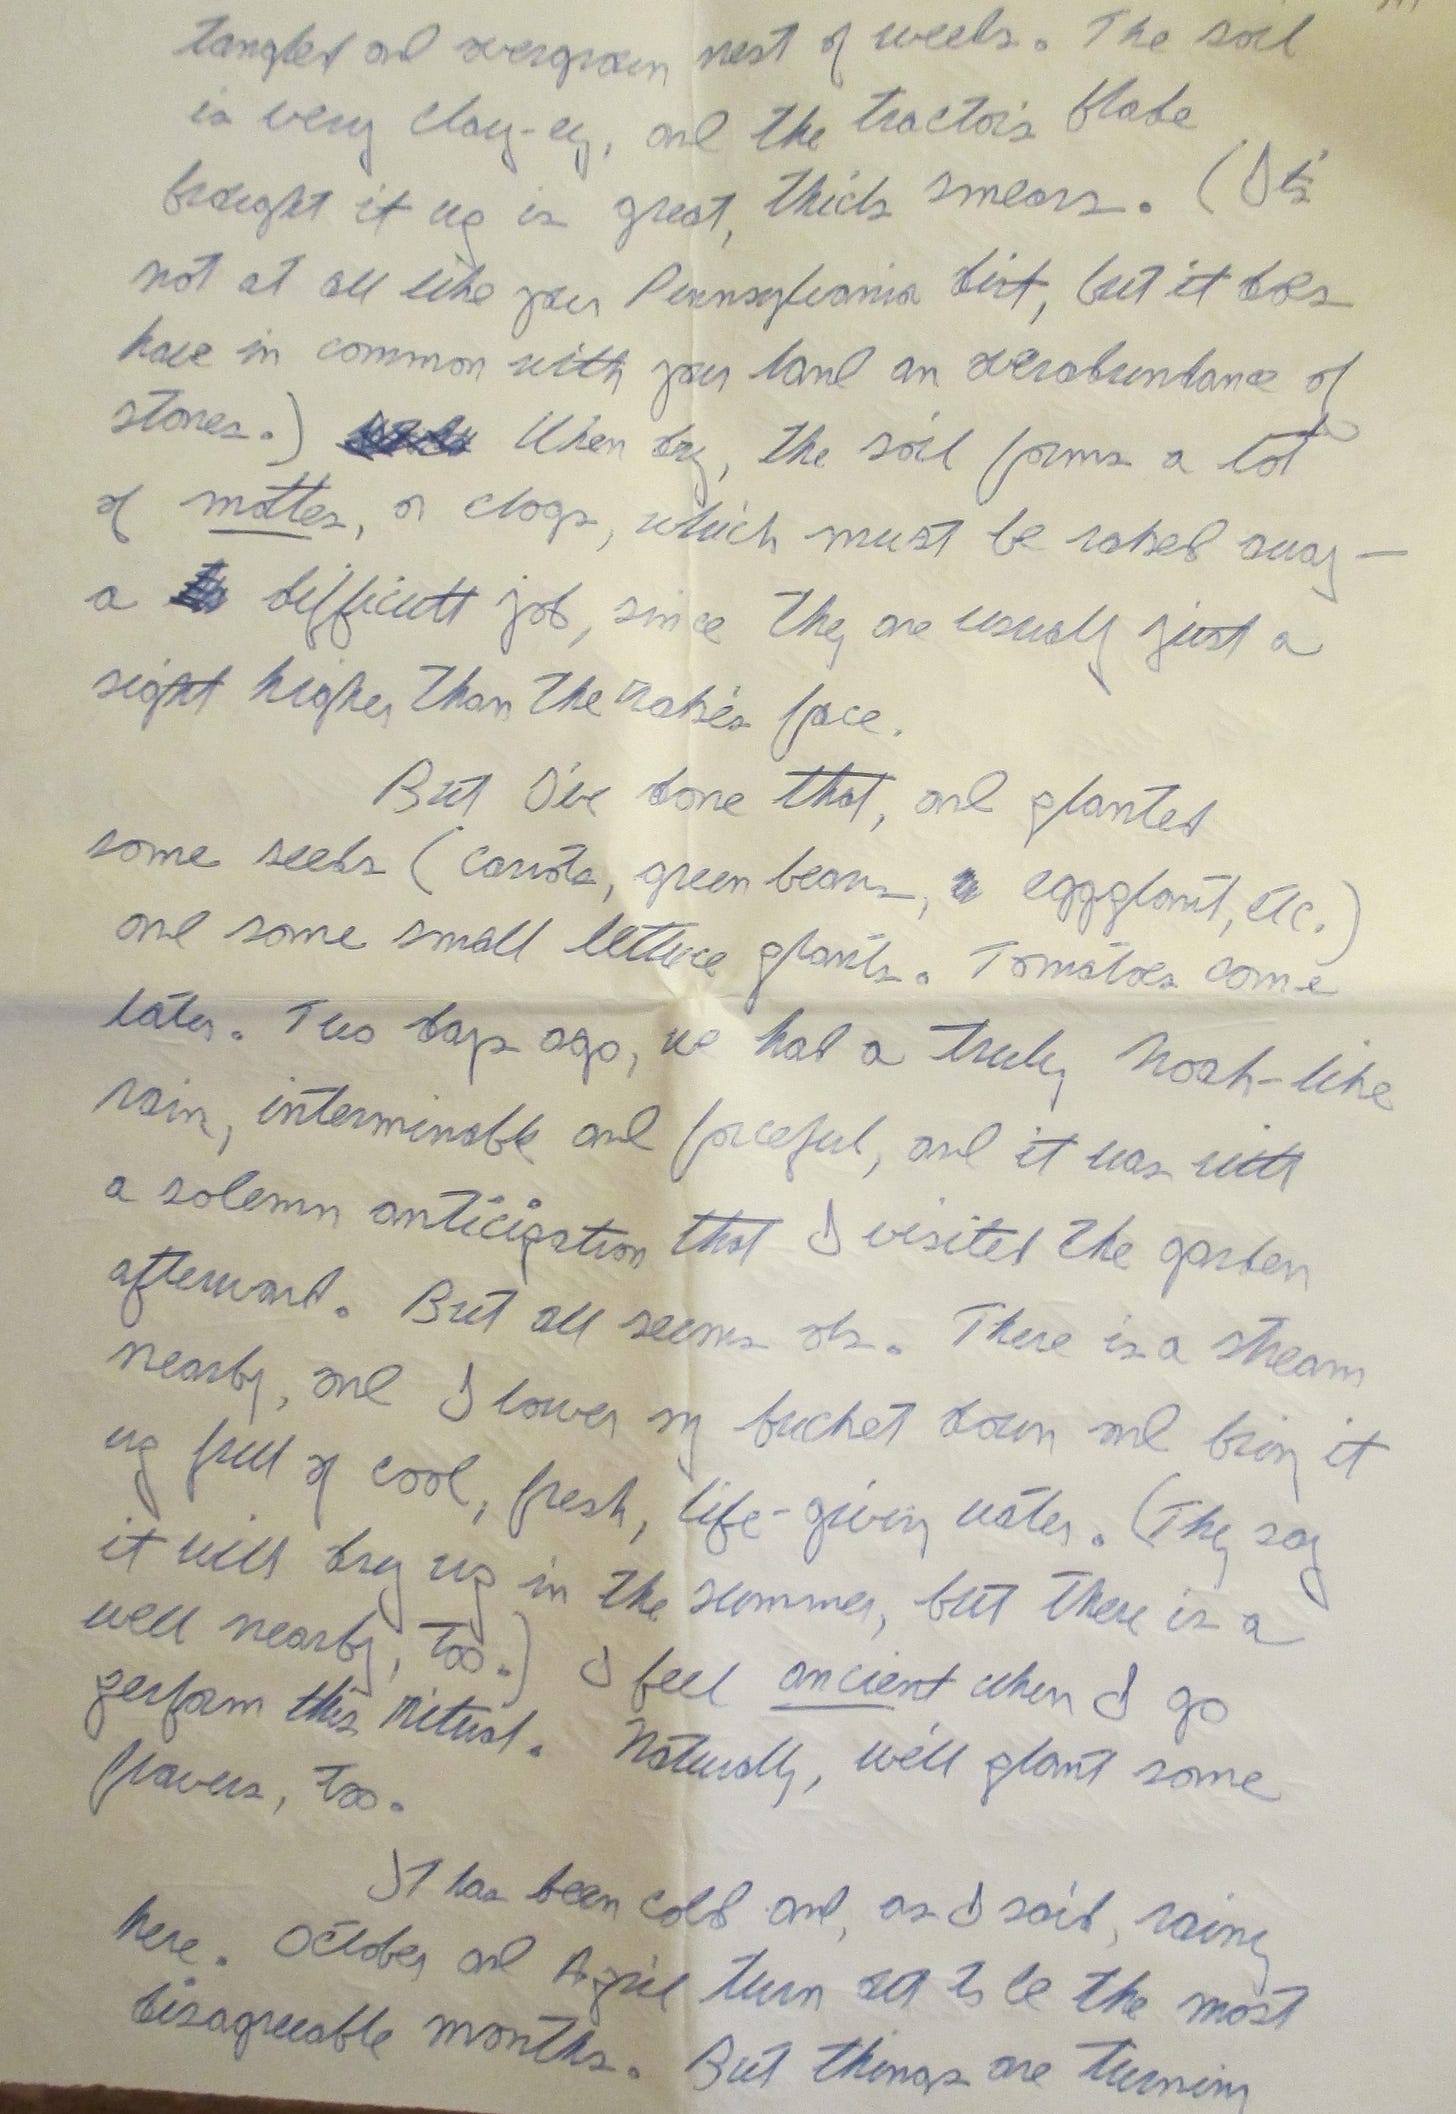 tangled and overgrown nest of weeds. The soil
is very clay-ey, and the tractor's blade
brought it up is great, thick smears. (It's
not at all like your Pennsylvania dirt, but it does
have in common with your land an overabundance of
stones.) When dry, the soil forms a lot
of mottes, or clogs, which must be raked away —
a difficult job, since they are usually just a
sight higher than the rake's face.
But I've done that, and planted
some seeds (carrots, green beans, eggplant, etc.)
and some small lettuce plants. Tomatoes come
later. Two days ago, we had a truly Noah-like
rain, interminable and forceful, and it was with
a solemn anticipation that I visited the garden
afterward. But all seems ok. There is a stream
nearby, and I lower my bucket down and bring it
up full of cool, fresh, life-giving water. (They say
it will dry up in the summer, but there is a
well nearby, too.) I feel ancient when I go
perform this ritual. Naturally, we'll plant some
flowers, too.
It has been cold and, as I said, rainy
here. October and April turn out to be the most
disagreeable months. But things are turning